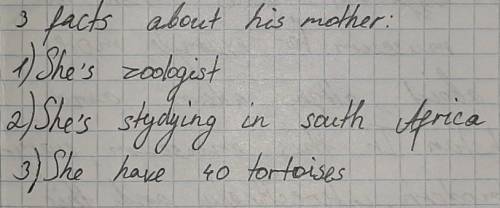 3 facts about his mother:
1) She's zoologist
2) She's stydying in south Africa
3) She have 40 tortoises